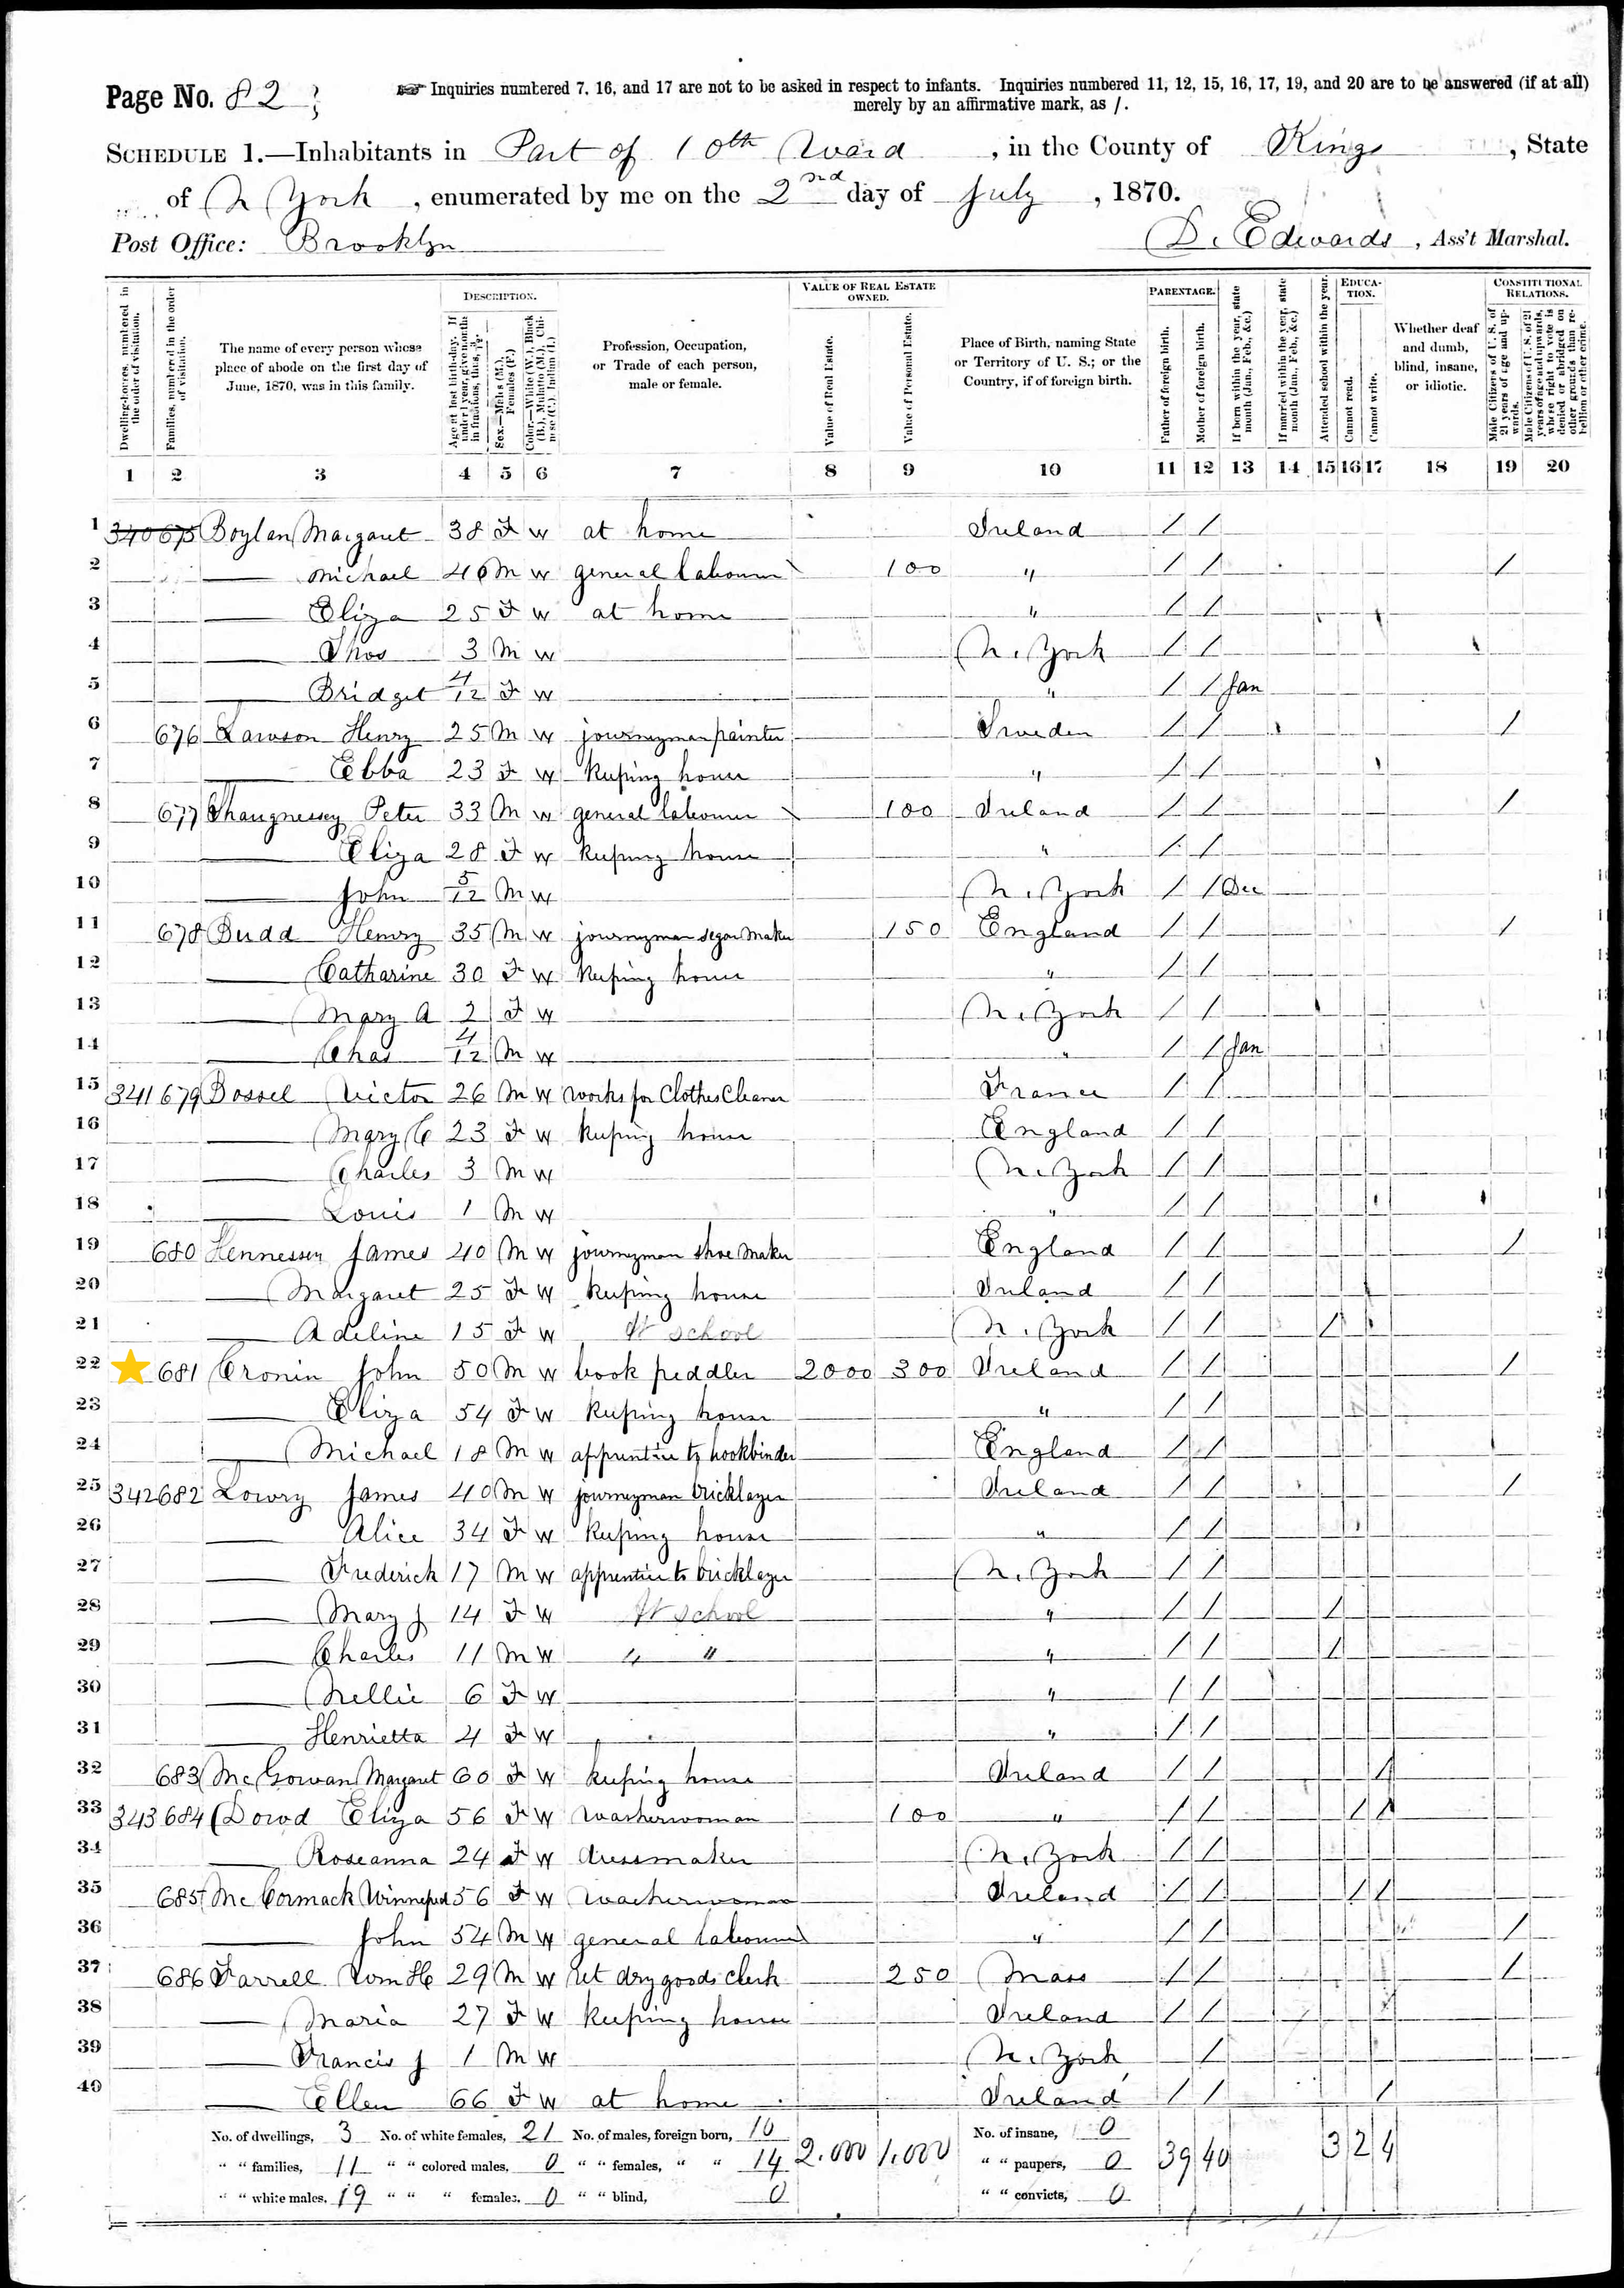 Page No. 82
Inquiries numbered 7, 16, and 17 are not to be asked in respect to infants. Inquiries numbered 11, 12, 15, 16, 17, 19, and 20 are to be answered (if at all)
merely by an affirmative mark, as /.
SCHEDULE 1.—Inhabitants in Part of 10th Ward, in the County of Kings, State
of N York, enumerated by me on the 2nd day of July, 1870.
Post Office: Brooklyn D. Edwards, Ass't Marshal.
DESCRIPTION. VALUE OF REAL ESTATE OWNED. PARENTAGE. EDUCATION. CONSTITUTIONAL RELATIONS.
Dwelling-houses, numbered in the order of visitation.
Families, numbered in the order of visitation.
The name of every person whose place of abode on the first day of June, 1870, was in this family.
Age at last birth-day. If under 1 year, give months in fractions, thus, 3/12.
Sex.—Males (M.), Females (F.)
Color.—White (W.), Black (B.), Mulatto (M.), Chinese (C.), Indian (I.)
Profession, Occupation, or Trade of each person, male or female.
Value of Real Estate.
Value of Personal Estate.
Place of Birth, naming State or Territory of U. S.; or the Country, if of foreign birth.
Father of foreign birth.
Mother of foreign birth.
If born within the year, state month (Jan., Feb., &c.)
If married within the year, state month (Jan., Feb., &c.)
Attended school within the year.
Cannot read.
Cannot write.
Whether deaf and dumb, blind, insane, or idiotic.
Male Citizens of U. S. of 21 years of age and upwards.
Male Citizens of U. S. of 21 years of age and upwards, whose right to vote is denied or abridged on other grounds than rebellion or other crime.
1 2 3 4 5 6 7 8 9 10 11 12 13 14 15 16 17 18 19 20
1 340 675 Boylan Margaret 38 F W at home Ireland / /
2 — Michael 46 M W general labourer 100 " / / /
3 — Eliza 25 F W at home " / /
4 — Thos 3 M W N. York / /
5 — Bridget 4/12 F W " / / Jan
6 676 Lawson Henry 25 M W journeyman painter Sweden / / /
7 — Ebba 23 F W keeping house " / /
8 677 Shaugnessey Peter 33 M W general labourer 100 Ireland / / /
9 — Eliza 28 F W keeping house " / /
10 — John 5/12 M W N. York / / Dec
11 678 Budd Henry 35 M W journeyman segar maker 150 England / / /
12 — Catharine 30 F W keeping house " / /
13 — Mary A 2 F W N. York / /
14 — Chas 4/12 M W " / / Jan
15 341 679 Bossel Victor 26 M W works for Clothes Cleaner France / /
16 — Mary C 23 F W keeping house England / /
17 — Charles 3 M W N. York / /
18 — Louis 1 M W " / /
19 680 Hennessey James 40 M W journeyman shoe maker England / / /
20 — Margaret 25 F W keeping house Ireland / /
21 — Adeline 15 F W At school N. York / / /
22 681 Cronin John 50 M W book peddler 2000 300 Ireland / / /
23 — Eliza 54 F W keeping house " / /
24 — Michael 18 M W apprentice to bookbinder England / /
25 342 682 Lowry James 40 M W journeyman bricklayer Ireland / / /
26 — Alice 34 F W keeping house " / /
27 — Frederick 17 M W apprentice to bricklayer N. York / /
28 — Mary J 14 F W At school " / / /
29 — Charles 11 M W " " " / / /
30 — Nellie 6 F W " / /
31 — Henrietta 4 F W " / /
32 683 McGowan Margaret 60 F W keeping house Ireland / / /
33 343 684 Dowd Eliza 56 F W washerwoman 100 " / / / /
34 — Roseanna 24 F W dressmaker N. York / /
35 685 McCormack Winneferd 56 F W washerwoman Ireland / / / /
36 — John 54 M W general labourer " / / /
37 686 Farrell Wm H 29 M W ret dry goods clerk 250 Mass / / /
38 — Maria 27 F W keeping house Ireland / /
39 — Francis J 1 M W N. York /
40 — Ellen 66 F W at home Ireland / / /
No. of dwellings, 3 No. of white females, 21 No. of males, foreign born, 10 2.000 1.000 No. of insane, 0 39 40 3 2 4
" " families, 11 " " colored males, 0 " " females, " " 14 " " paupers, 0
" " white males, 19 " " " females, 0 " " blind, 0 " " convicts, 0